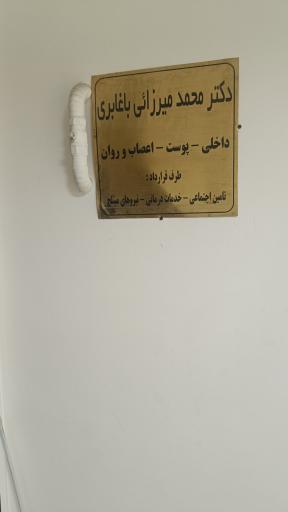 دکتر محمد میرزائی باغابری
داخلی - پوست - اعصاب و روان
طرف قرارداد :
تامین اجتماعی - خدمات درمانی - نیروهای مسلح